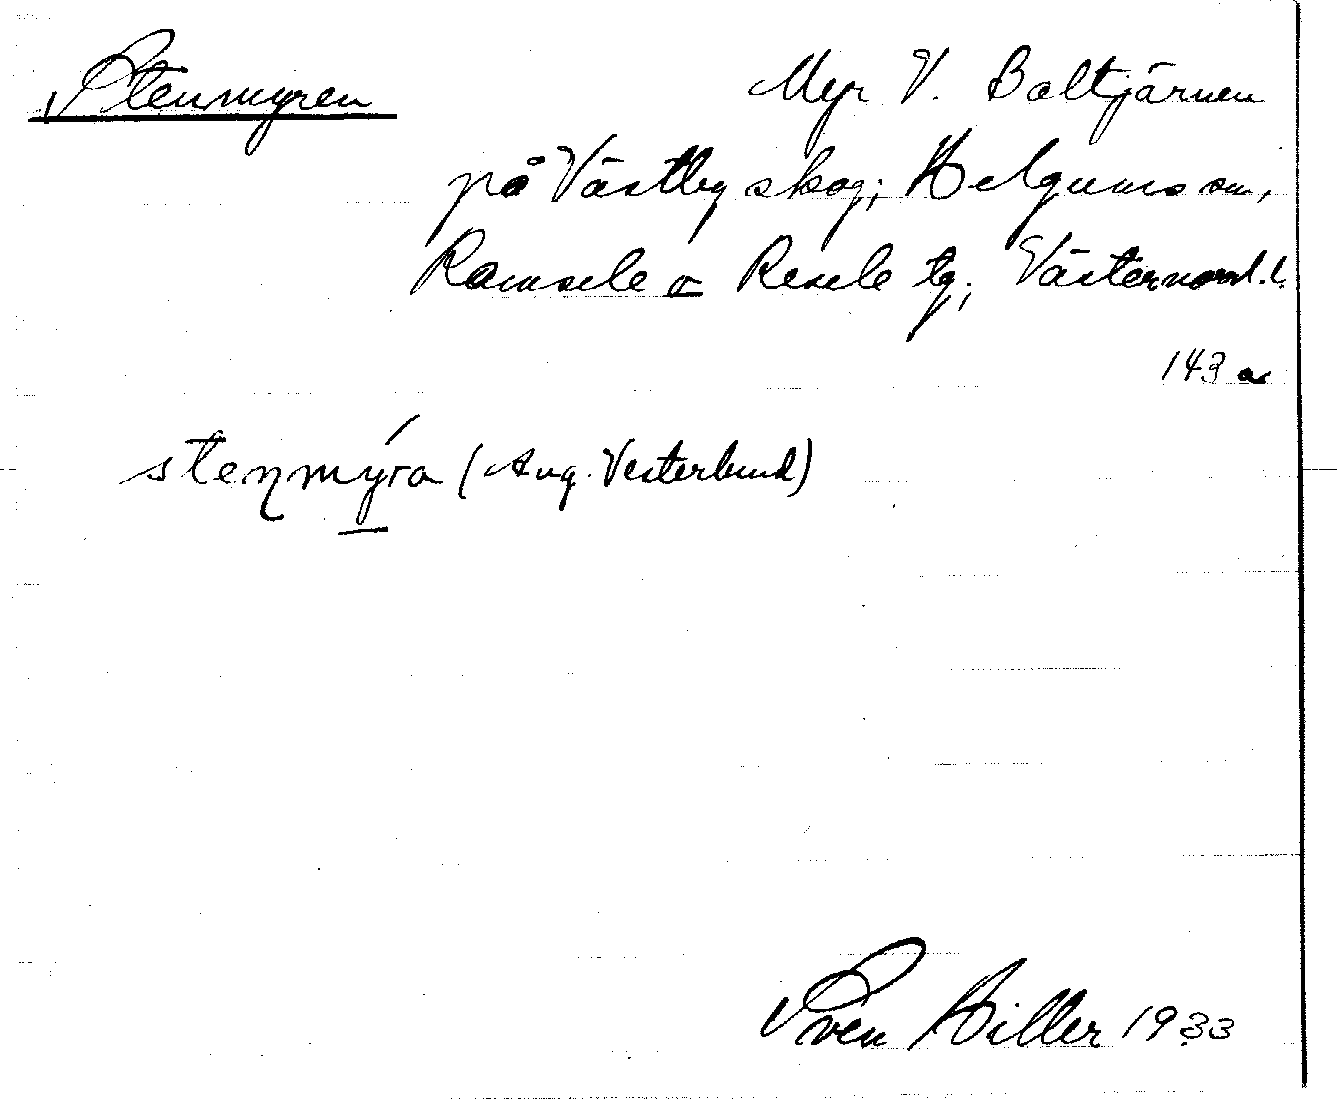 Stenmyren
Myr V. Baltjärnen
på Västby skog; Helgums sn,
Ramsele o Resele tg; Västernorrl. l.
143 a
stenmýra (Aug. Vesterlund)
Sven Hiller 1933